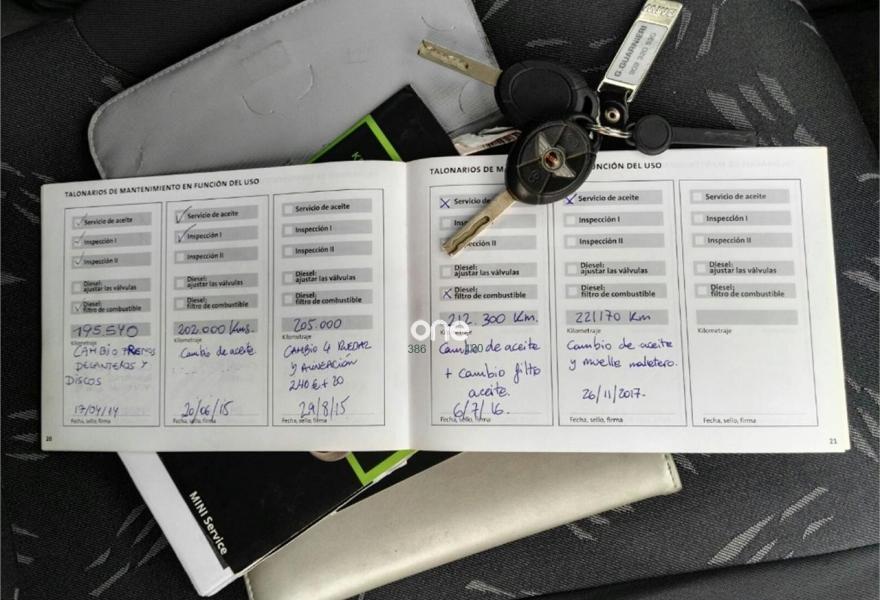 TALONARIOS DE MANTENIMIENTO EN FUNCIÓN DEL USO
Servicio de aceite
Inspección I
Inspección II
Diesel:
ajustar las válvulas
Diesel:
filtro de combustible
195.540
Kilometraje
CAMBIO FRENOS
DELANTEROS Y
DISCOS
17/04/14
Fecha, sello, firma
Servicio de aceite
Inspección I
Inspección II
Diesel:
ajustar las válvulas
Diesel:
filtro de combustible
202.000 Kms.
Kilometraje
Cambio de aceite.
20/06/15
Fecha, sello, firma
Servicio de aceite
Inspección I
Inspección II
Diesel:
ajustar las válvulas
Diesel:
filtro de combustible
205.000
Kilometraje
CAMBIO 4 RUEDAS
Y ALINEACIÓN
240 € + 20
29/8/15
Fecha, sello, firma
20
TALONARIOS DE M FUNCIÓN DEL USO
Servicio de
Insp
ión II
Diesel:
ajustar las válvulas
Diesel:
filtro de combustible
212.300 Km.
Kilometraje
Cambio de aceite
+ cambio filtro
aceite.
6/7/16.
Fecha, sello, firma
Servicio de aceite
Inspección I
Inspección II
Diesel:
ajustar las válvulas
Diesel:
filtro de combustible
221170 Km
Kilometraje
Cambio de aceite
y muelle maletero.
26/11/2017.
Fecha, sello, firma
Servicio de aceite
Inspección I
Inspección II
Diesel:
ajustar las válvulas
Diesel:
filtro de combustible
Kilometraje
Fecha, sello, firma
21
one
386
MINI Service
G.GUARNIERI